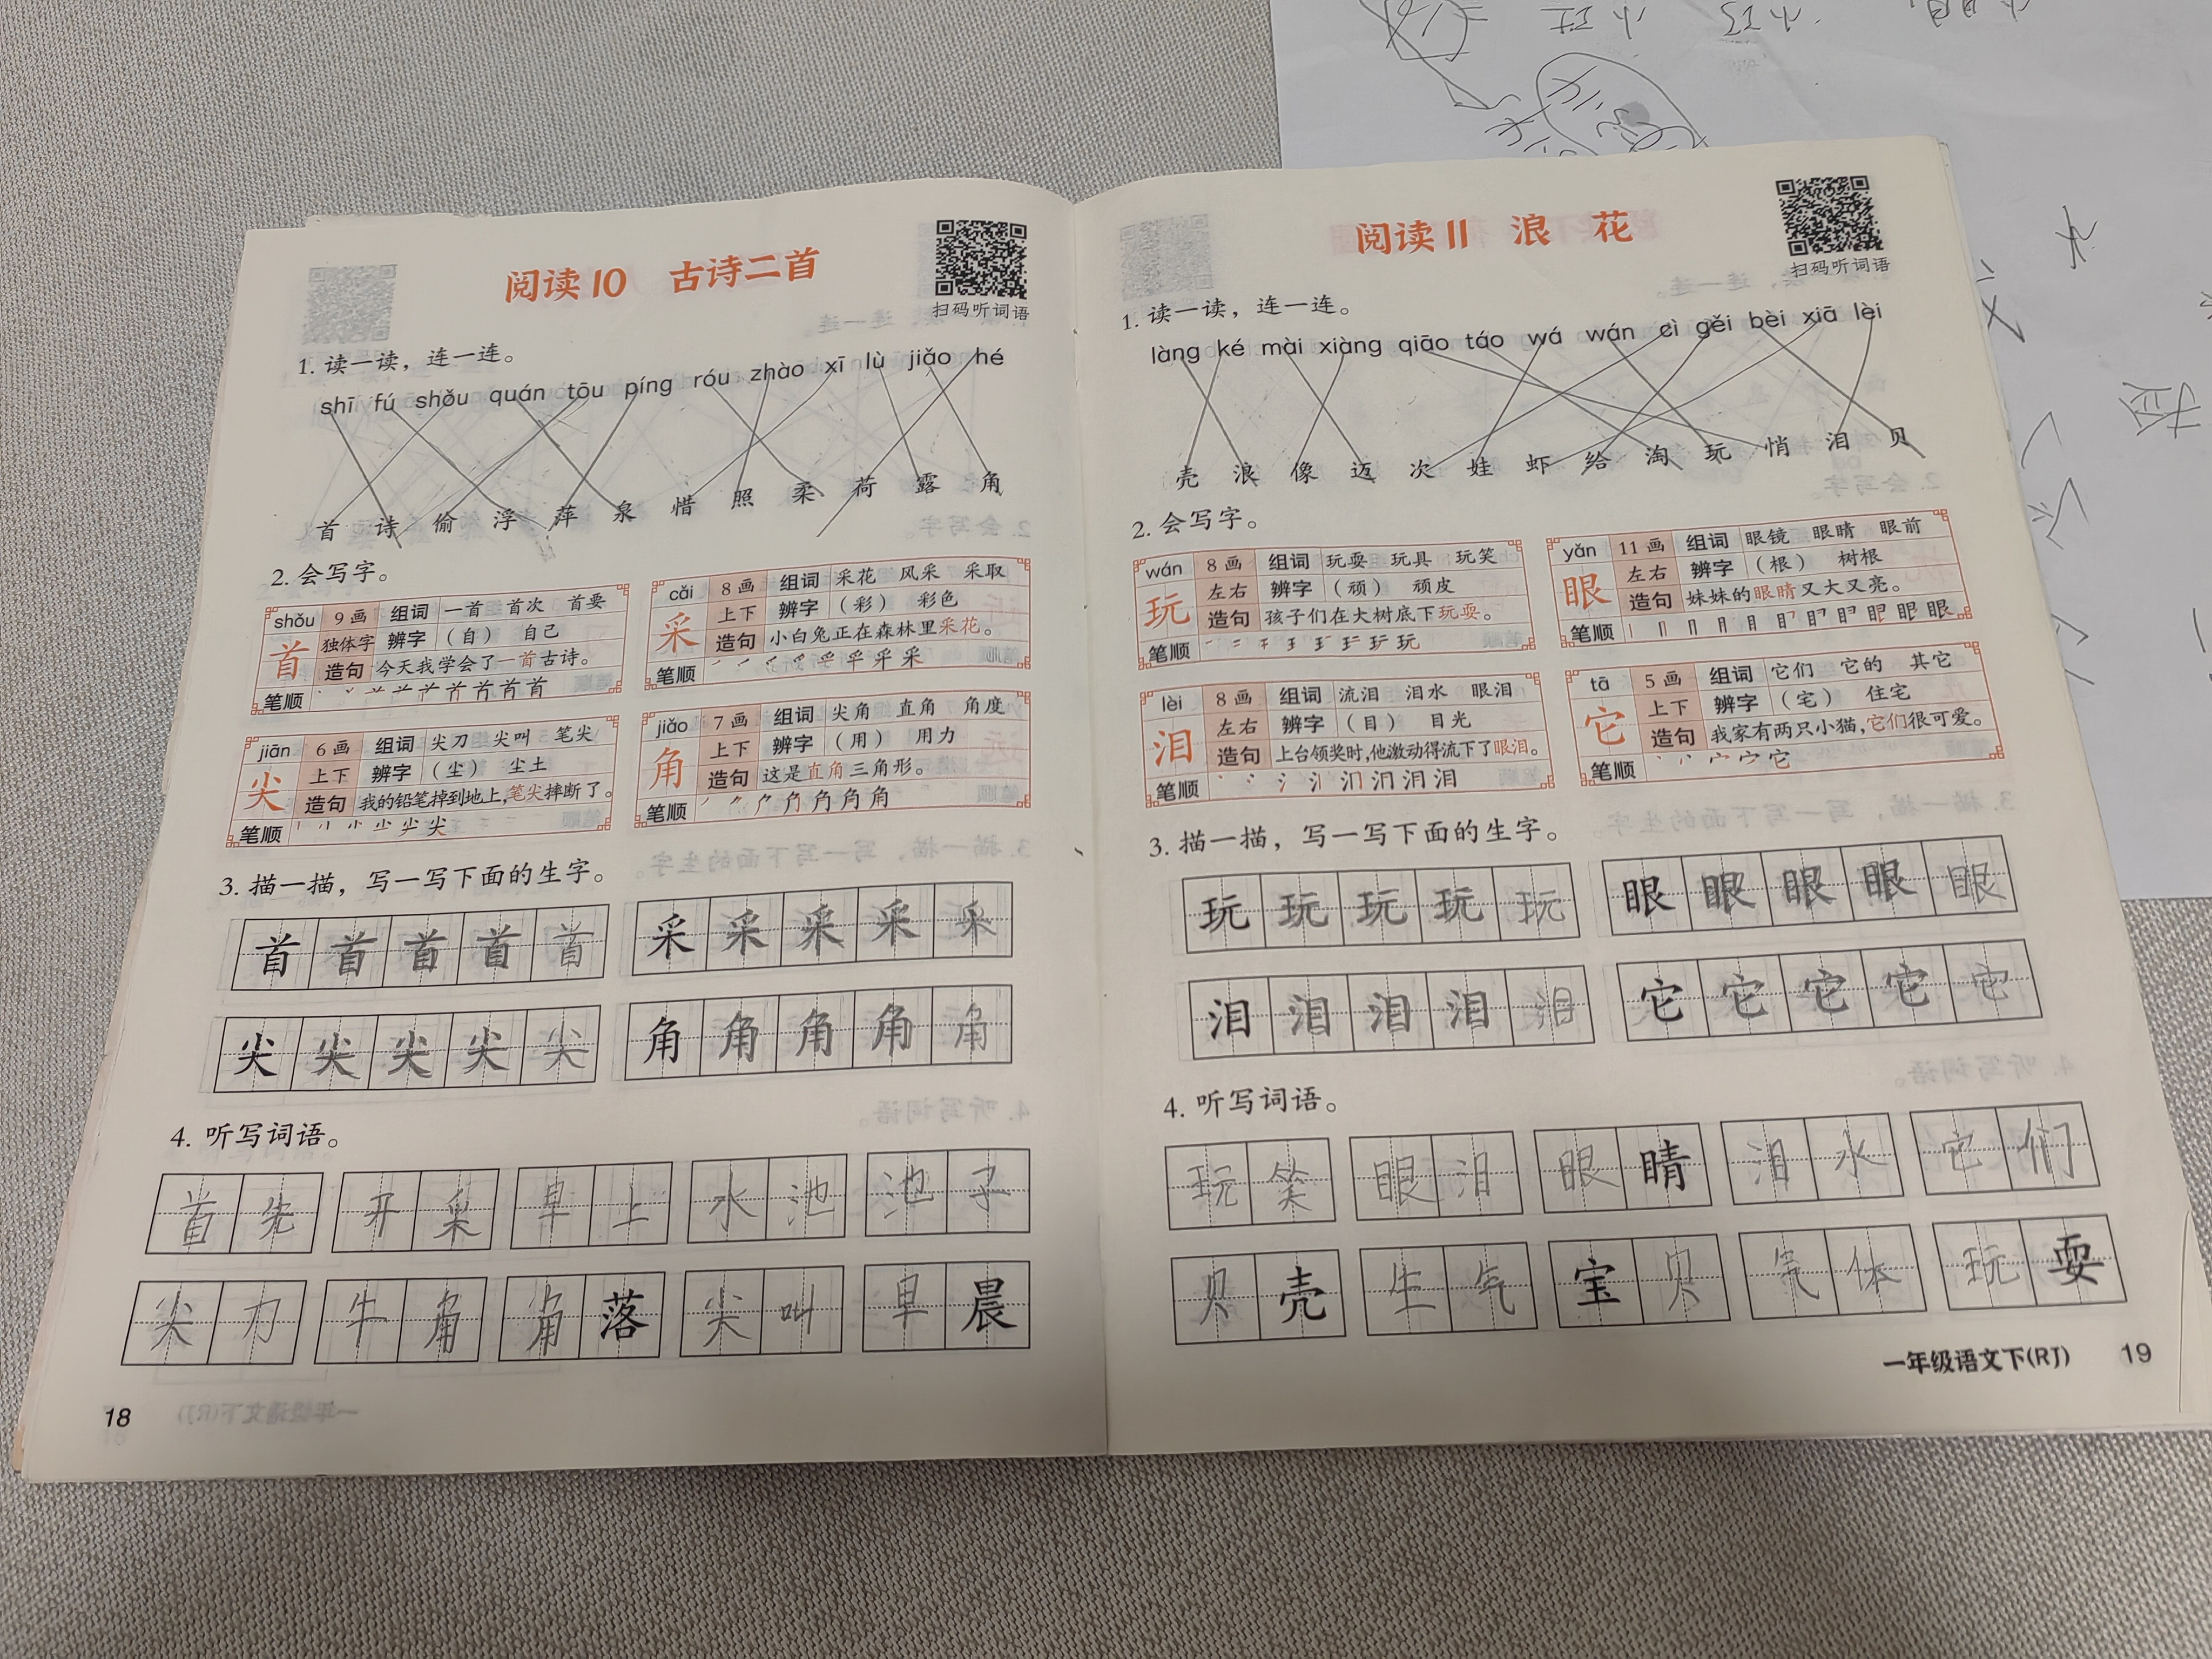 阅读10 古诗二首
扫码听词语
1. 读一读，连一连。
shī fú shǒu quán tōu píng róu zhào xī lù jiǎo hé
首 诗 偷 浮 萍 泉 惜 照 柔 荷 露 角
2. 会写字。
shǒu 9画 组词 一首 首次 首要
首 独体字 辨字 （自） 自己
造句 今天我学会了一首古诗。
笔顺
cǎi 8画 组词 采花 风采 采取
采 上下 辨字 （彩） 彩色
造句 小白兔正在森林里采花。
笔顺
jiān 6画 组词 尖刀 尖叫 笔尖
尖 上下 辨字 （尘） 尘土
造句 我的铅笔掉到地上，笔尖摔断了。
笔顺
jiǎo 7画 组词 尖角 直角 角度
角 上下 辨字 （用） 用力
造句 这是直角三角形。
笔顺
3. 描一描，写一写下面的生字。
首 首 首 首 首 采 采 采 采 采
尖 尖 尖 尖 尖 角 角 角 角 角
4. 听写词语。
首先 开采 早上 水池 池子
尖刀 牛角 角落 尖叫 早晨
18
阅读11 浪花
扫码听词语
1. 读一读，连一连。
làng ké mài xiàng qiāo táo wá wán cì gěi bèi xiā lèi
壳 浪 像 迈 次 娃 虾 给 淘 玩 悄 泪 贝
2. 会写字。
wán 8画 组词 玩耍 玩具 玩笑
玩 左右 辨字 （顽） 顽皮
造句 孩子们在大树底下玩耍。
笔顺
yǎn 11画 组词 眼镜 眼睛 眼前
眼 左右 辨字 （根） 树根
造句 妹妹的眼睛又大又亮。
笔顺
lèi 8画 组词 流泪 泪水 眼泪
泪 左右 辨字 （目） 目光
造句 上台领奖时，他激动得流下了眼泪。
笔顺
tā 5画 组词 它们 它的 其它
它 上下 辨字 （宅） 住宅
造句 我家有两只小猫，它们很可爱。
笔顺
3. 描一描，写一写下面的生字。
玩 玩 玩 玩 玩 眼 眼 眼 眼 眼
泪 泪 泪 泪 泪 它 它 它 它 它
4. 听写词语。
玩笑 眼泪 眼睛 泪水 它们
贝壳 生气 宝贝 气体 玩耍
一年级语文下(RJ) 19